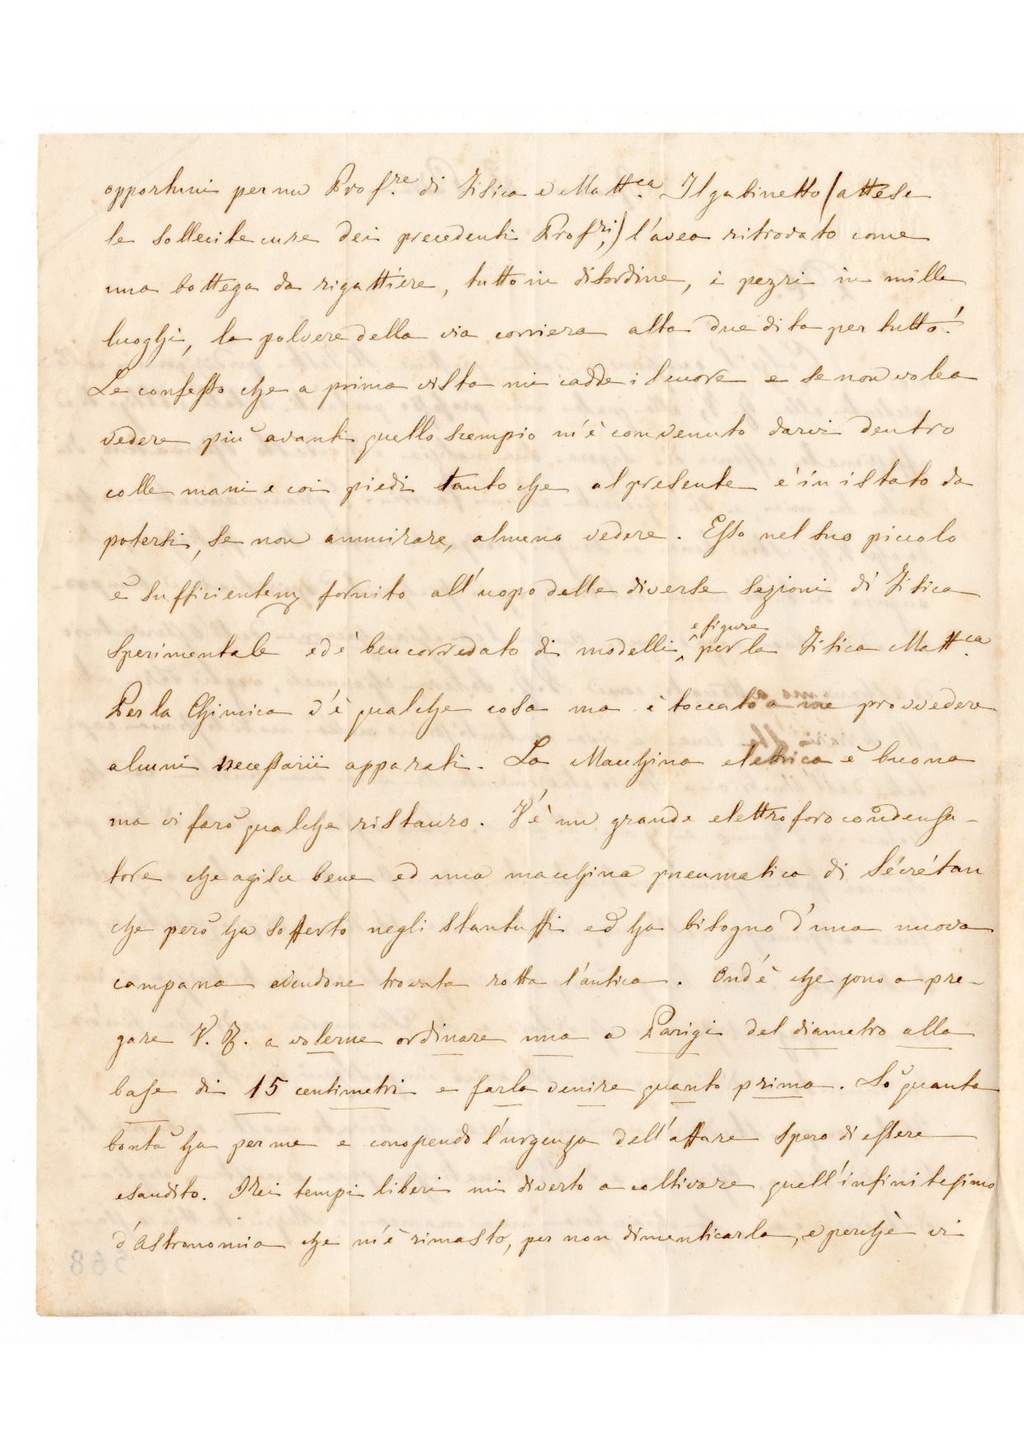 opportuni per un Prof.re di Fisica e Matt.ca Il gabinetto (attese
le sollecite cure dei precedenti Prof.ri,) l'aveo ritrovato come
una bottega da rigattiere, tutto in disordine, i pezzi in mille
luoghi, la polvere della via corriera alta due dita per tutto!
Le confesso che a prima vista mi cadde il cuore e se non volea
vedere più avanti quello scempio m'è convenuto darvi dentro
colle mani e coi piedi tanto che al presente è in istato da
potersi, se non ammirare, almeno vedere. Esso nel suo piccolo
è sufficientem fornito all'uopo delle diverse sezioni di Fisica
Sperimentale ed è ben corredato di modelli, e figure per la Fisica Matt.ca
Per la Chimica v'è qualche cosa ma è toccato a me provvedere
alcuni necessarii apparati. La Macchina elettrica è buona
ma vi farò qualche ristauro. V'è un grande elettroforo condensa-
tore che agisce bene ed una macchina pneumatica di Sécrétan
che però ha sofferto negli stantuffi ed ha bisogno d'una nuova
campana avendone trovata rotta l'antica. Ond'è che sono a pre-
gare V. R. a volerne ordinare una a Parigi del diametro alla
base di 15 centimetri e farla venire quanto prima. So quanta
bontà ha per me e conoscendo l'urgenza dell'affare spero di essere
esaudito. Nei tempi liberi mi diverto a coltivare quell'infinitesimo
d'Astronomia che m'è rimasto, per non dimenticarla, e perchè vi
568